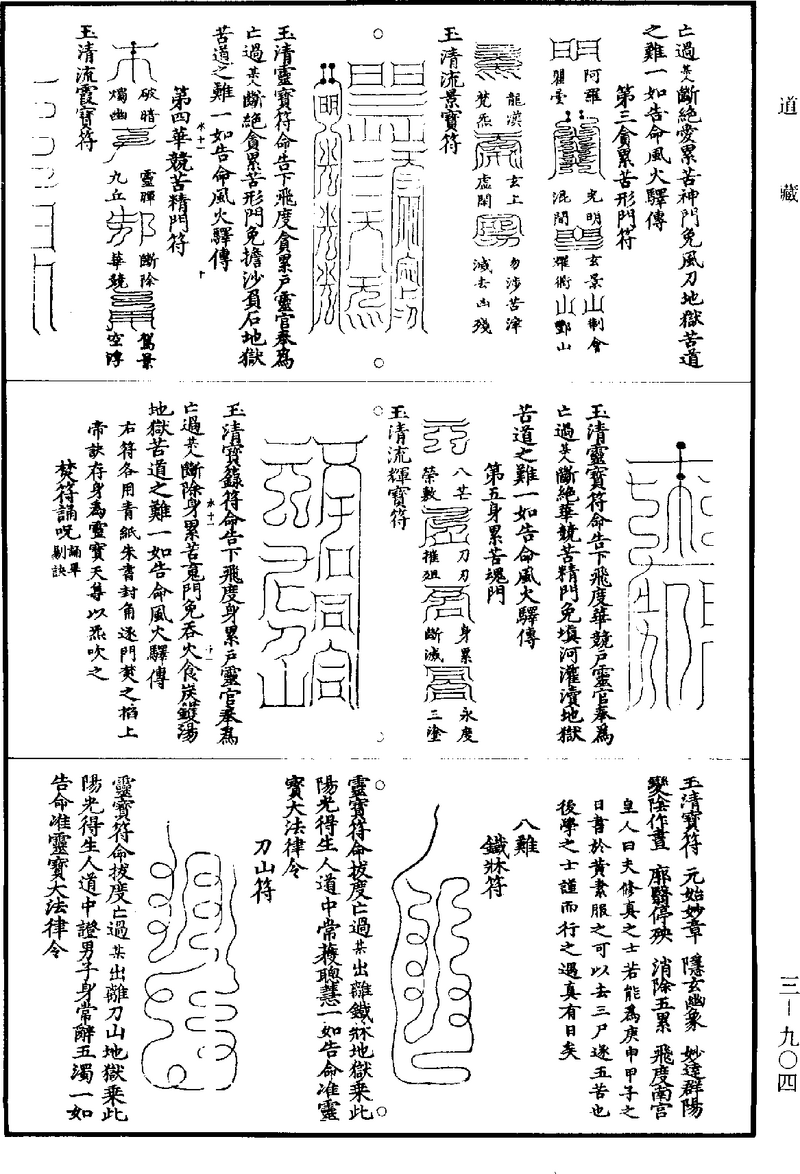 道藏
亡過某人斷絕愛累苦神門免風刀地獄苦道
之難一如告命風火驛傳
第三貪累苦形門符
阿羅
光明
玄景
制會
混間
耀衡
酆山
龍漢
玄上
勿涉苦津
梵炁
虛開
滅去凶殘
玉清流景寶符
玉清靈寶符命告下飛度貪累戶靈官奉為
亡過某人斷絕貪累苦形門免擔沙負石地獄
苦道之難一如告命風火驛傳
第四華競苦精門符
破暗
靈暉
斷除
駕景
燭幽
九丘
華競
空淳
玉清流霞寶符
玉清靈寶符命告下飛度華競戶靈官奉為
亡過某人斷絕華競苦精門免填河灌瀆地獄
苦道之難一如告命風火驛傳
第五身累苦魂門
八芒
刀刃
身累
永度
摧俎
斷滅
三塗
玉清流輝寶符
玉清寶籙符命告下飛度身累戶靈官奉為
亡過某人斷除身累苦魂門免吞火食炭鑊湯
地獄苦道之難一如告命風火驛傳
右符各用青紙朱書封角逐門焚之掐上
帝訣存身為靈寶天尊以炁吹之
焚符誦呪誦畢剔訣
玉清寶符 元始妙章 隱玄幽象 妙達群陽
變陰作晝 廓翳停殃 消除五累 飛度南宮
皇人曰夫修真之士若能為庚申甲子之
日書於黃素服之可以去三尸遂五苦也
後學之士謹而行之遇真有日矣
八難
鐵牀符
靈寶符命拔度亡過某出離鐵牀地獄乘此
陽光得生人道中常獲聰慧一如告命准靈
寶大法律令
刀山符
靈寶符命拔度亡過某出離刀山地獄乘此
陽光得生人道中證男子身常辭五濁一如
告命准靈寶大法律令
三—九〇四